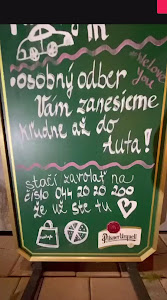 Welcome
you
•osobný odber
Vám zanesieme
kľudne až do
auta!
stačí zavolať na
číslo 044 20 20 200
že už ste tu
Pilsner Urquell